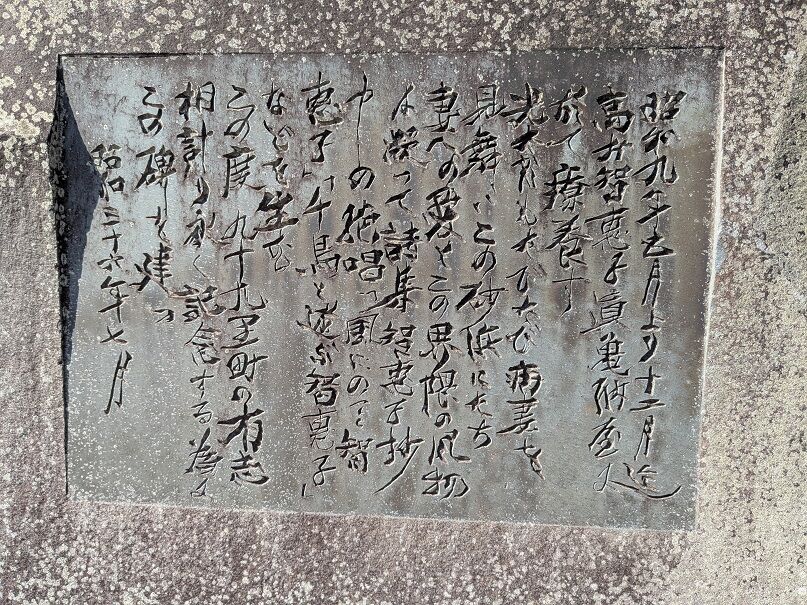 昭和九年五月より十二月迄
高村智恵子眞亀納屋に
於て療養す
光太郎もたびたび病妻を
見舞いこの砂浜にたち
妻への愛とこの界隈の風物
は凝って詩集智恵子抄
中の絶唱「風にのる智
恵子」「千鳥と遊ぶ智恵子」
などを生む
この度九十九里町の有志
相計り永く記念する為に
この碑を建つ
昭和三十六年七月